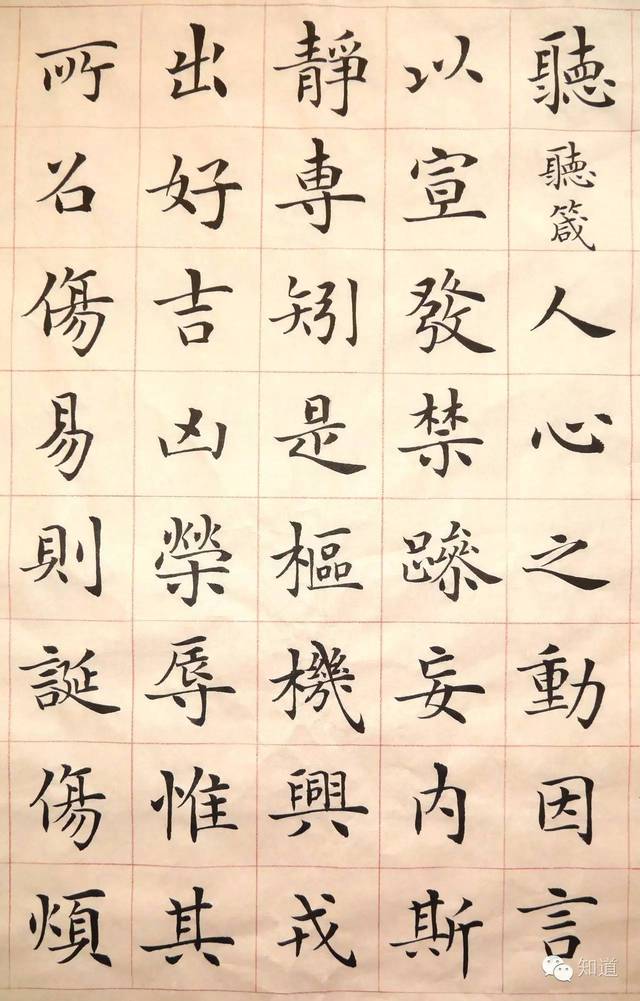 聽聽箴人心之動因言
以宣發禁躁妄内斯
靜専矧是樞機興戎
出好吉凶榮辱惟其
所召傷易則誕傷煩
知道